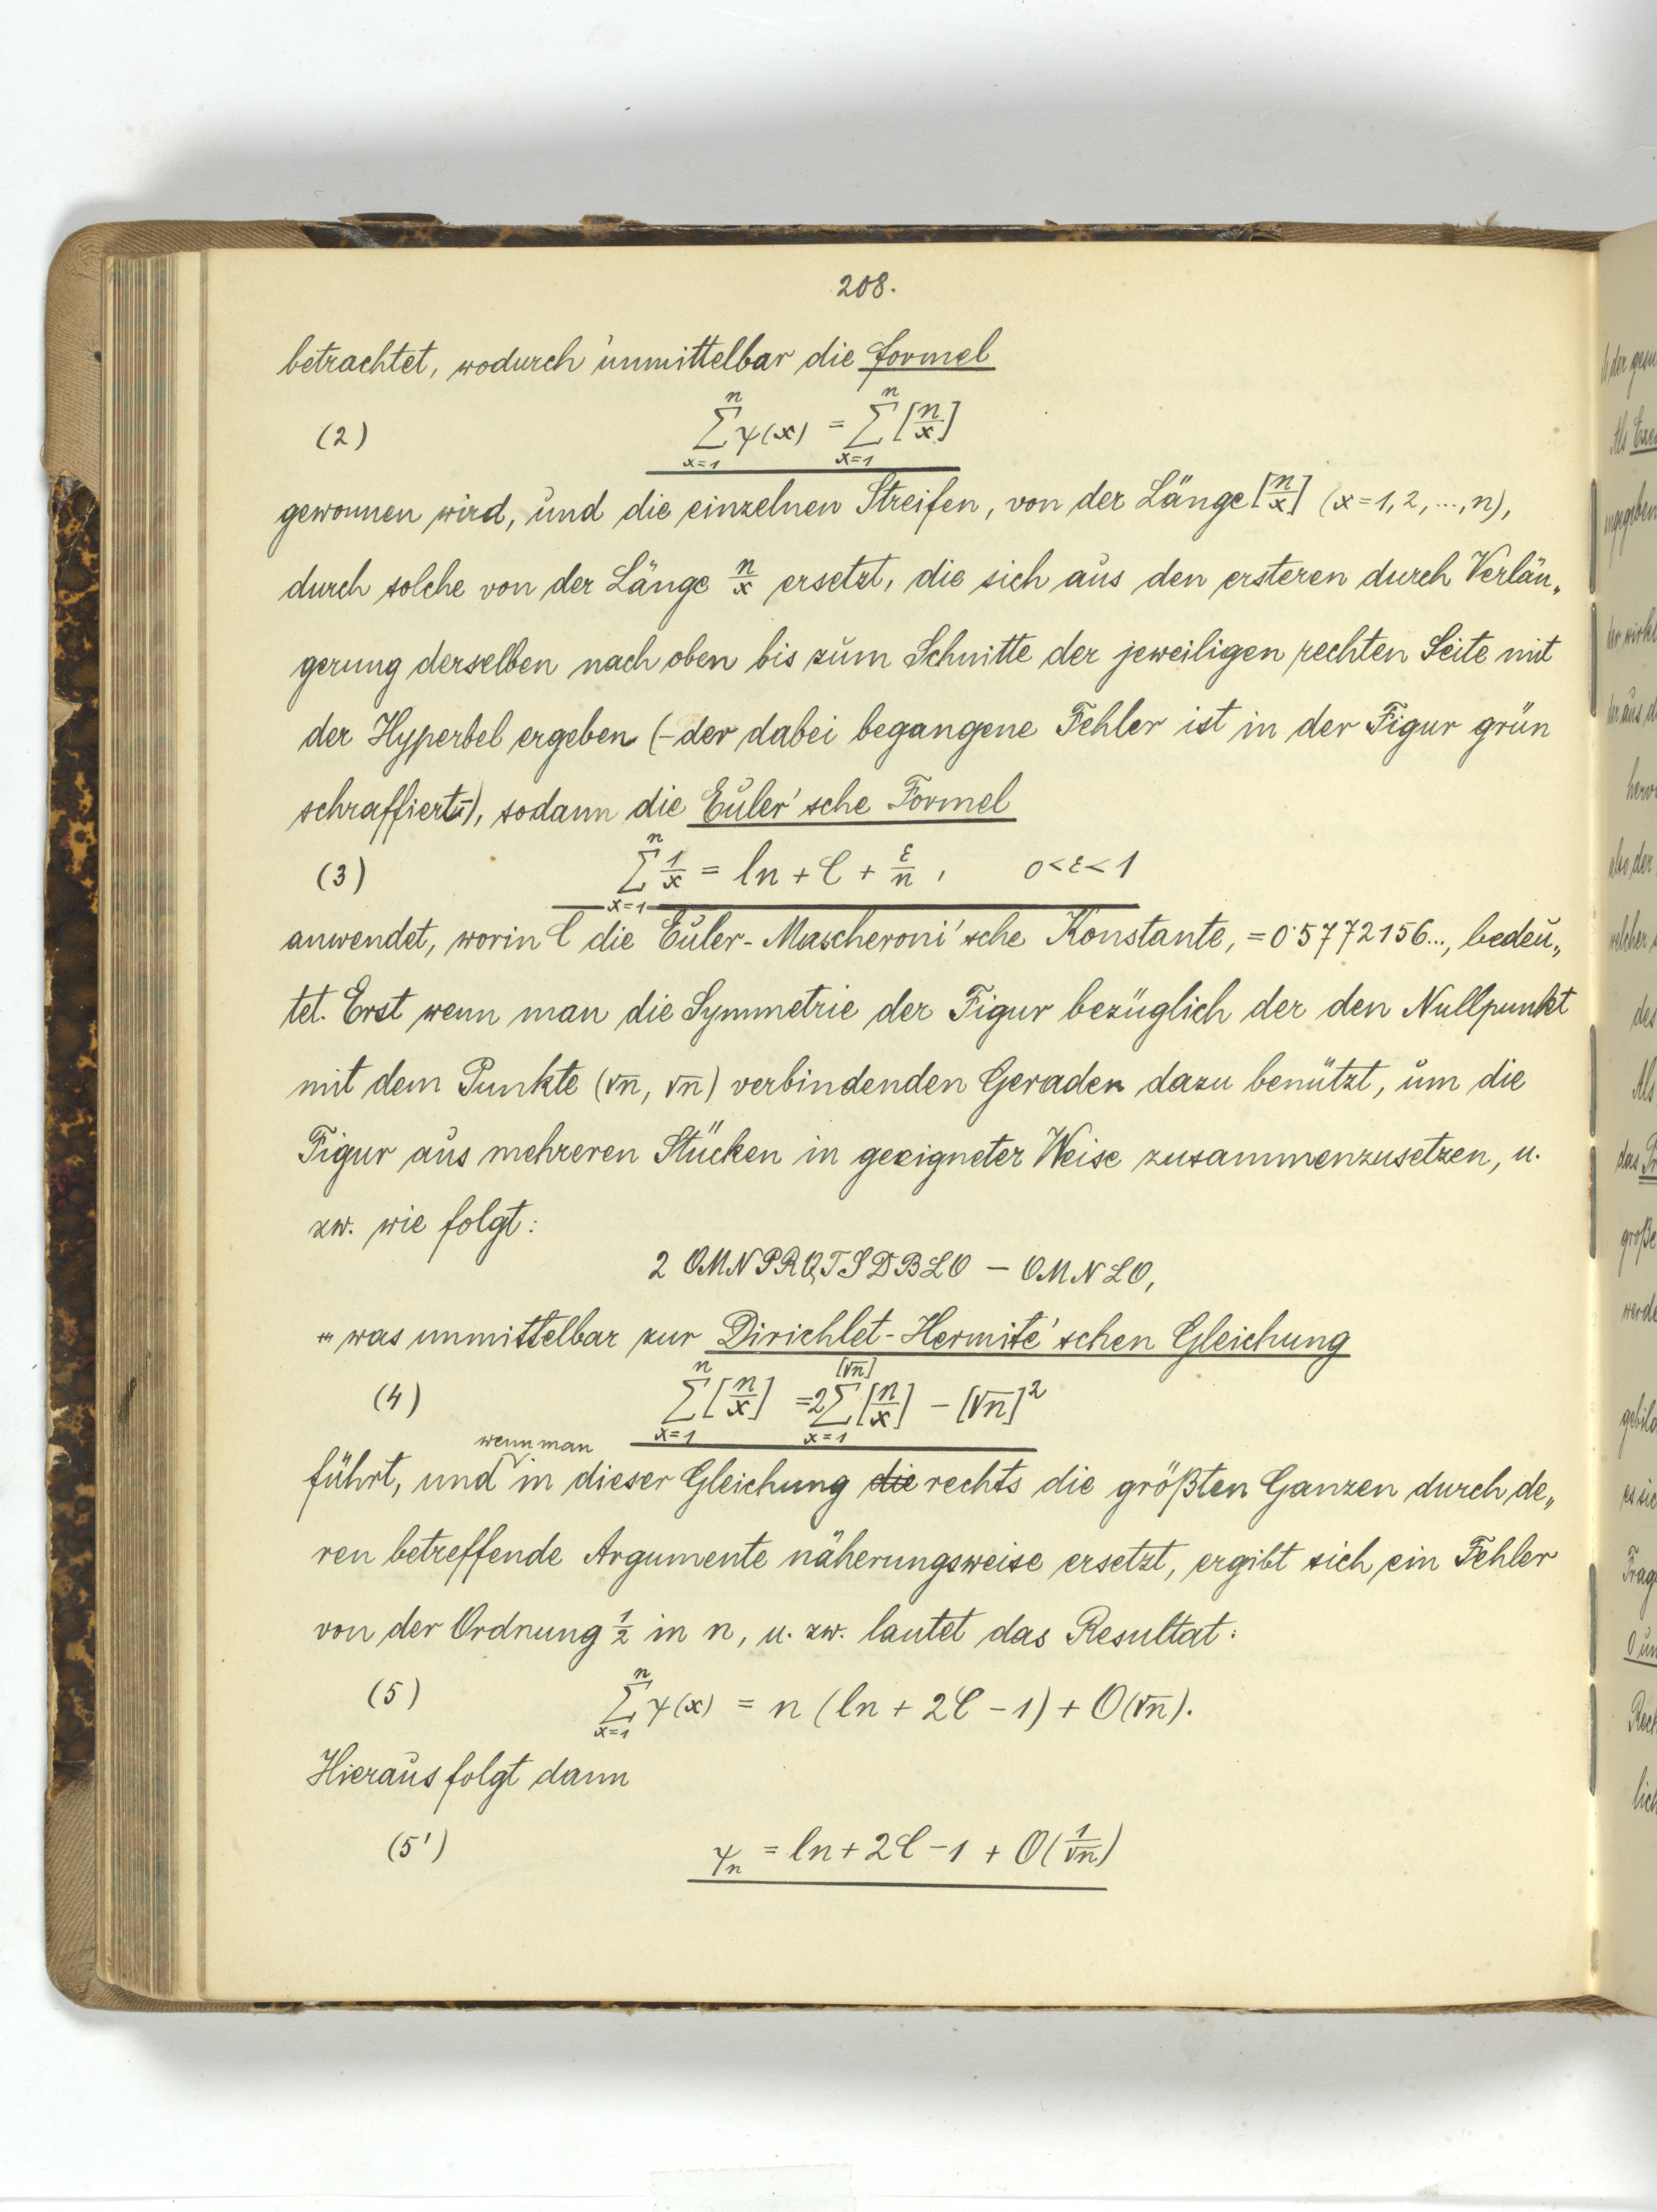 208.
betrachtet, wodurch unmittelbar die Formel
(2) \sum_{x=1}^{n} ψ(x) = \sum_{x=1}^{n} [n/x]
gewonnen wird, und die einzelnen Streifen, von der Länge [n/x] (x=1,2,...,n),
durch solche von der Länge n/x ersetzt, die sich aus den ersteren durch Verlän„
gerung derselben nach oben bis zum Schnitte der jeweiligen rechten Seite mit
der Hyperbel ergeben (–der dabei begangene Fehler ist in der Figur grün
schraffiert–), sodann die Euler'sche Formel
(3) \sum_{x=1}^{n} 1/x = ln + C + ε/n, 0<ε<1
anwendet, worin C die Euler-Mascheroni'sche Konstante, =0·5772156..., bedeu„
tet. Erst wenn man die Symmetrie der Figur bezüglich der den Nullpunkt
mit dem Punkte (√n, √n) verbindenden Geraden dazu benützt, um die
Figur aus mehreren Stücken in geeigneter Weise zusammenzusetzen, u.
zw. wie folgt:
2 OMNPRQTSDBLO – OMNLO,
was unmittelbar zur Dirichlet-Hermite'schen Gleichung
(4) \sum_{x=1}^{n} [n/x] = 2\sum_{x=1}^{[√n]} [n/x] – [√n]²
wenn man
führt, und in dieser Gleichung die rechts die größten Ganzen durch de„
ren betreffende Argumente näherungsweise ersetzt, ergibt sich ein Fehler
von der Ordnung ½ in n, u. zw. lautet das Resultat:
(5) \sum_{x=1}^{n} ψ(x) = n (ln + 2C – 1) + O(√n).
Hieraus folgt dann
(5') ψ_n = ln + 2C – 1 + O(1/√n)